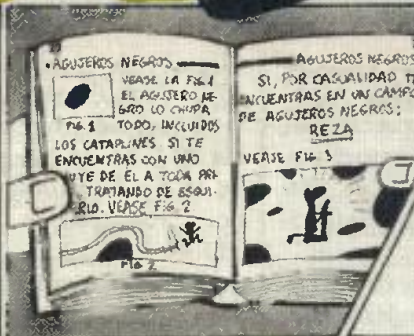 AGUJEROS NEGROS
VEASE LA FIG.1
EL AGUJERO NE-
GRO LO CHUPA
FIG. 1
TODO, INCLUIDOS
LOS CATAPLINES. SI TE
ENCUENTRAS CON UNO
UYE DE ÉL A TODA PRI
TRATANDO DE ESQUI-
RLO. VEASE FIG. 2
FIG 2
AGUJEROS NEGROS
SI, POR CASUALIDAD T
NCUENTRAS EN UN CAMPO
DE AGUJEROS NEGROS:
REZA
VEASE FIG 3